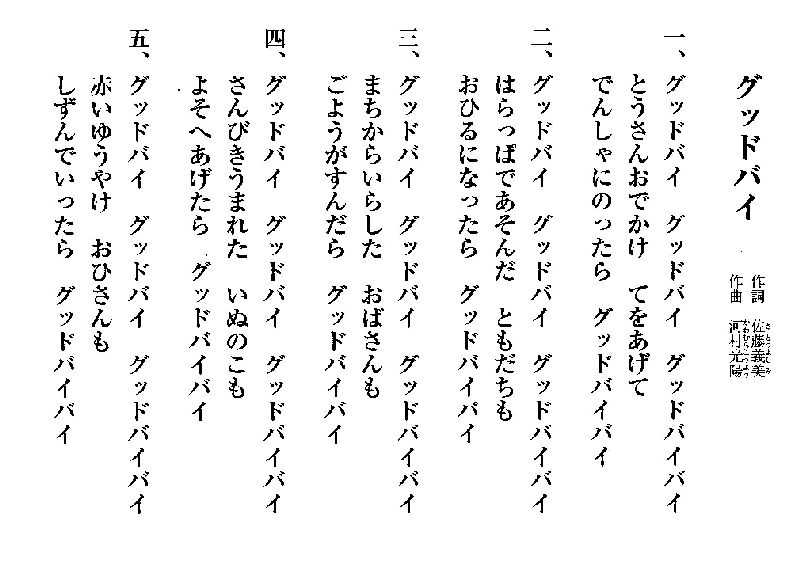 グッドバイ
作詞 佐藤義美
作曲 河村光陽
一、グッドバイ グッドバイ グッドバイバイ
とうさんおでかけ てをあげて
でんしゃにのったら グッドバイバイ
二、グッドバイ グッドバイ グッドバイバイ
はらっぱであそんだ ともだちも
おひるになったら グッドバイバイ
三、グッドバイ グッドバイ グッドバイバイ
まちからいらした おばさんも
ごようがすんだら グッドバイバイ
四、グッドバイ グッドバイ グッドバイバイ
さんびきうまれた いぬのこも
よそへあげたら グッドバイバイ
五、グッドバイ グッドバイ グッドバイバイ
赤いゆうやけ おひさんも
しずんでいったら グッドバイバイ